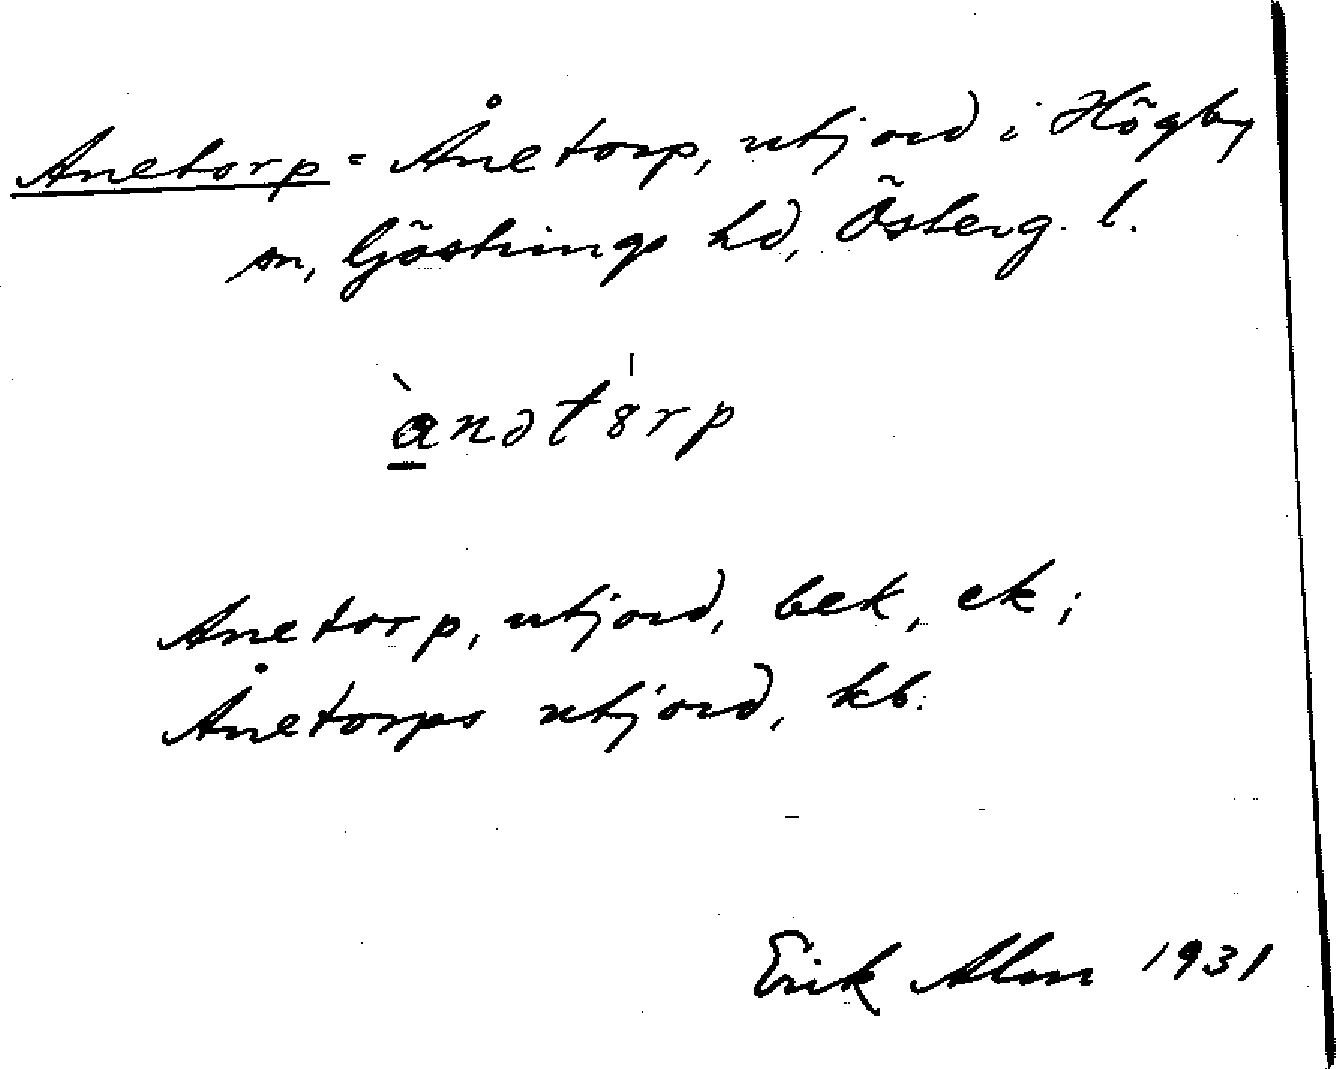 Anetorp = Ånetorp, utjord i Högby
sn, Göstrings hd, Österg. l.
ànət8rp
Anetorp, utjord, bek, ek;
Ånetorps utjord, kb.
Erik Alm 1931